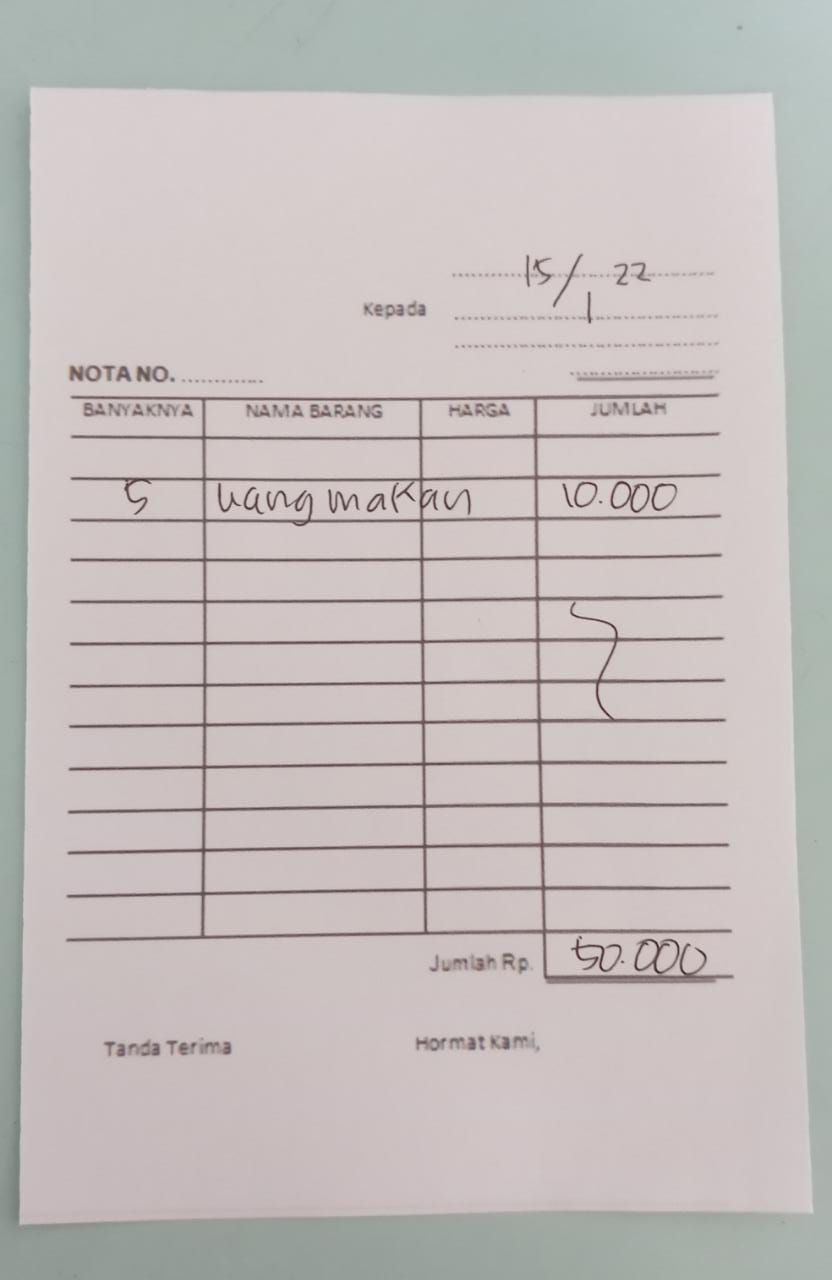 15/1 22
Kepada
NOTA NO. ............
BANYAKNYA NAMA BARANG HARGA JUMLAH
5 uang makan 10.000
Jumlah Rp. 50.000
Tanda Terima Hormat Kami,